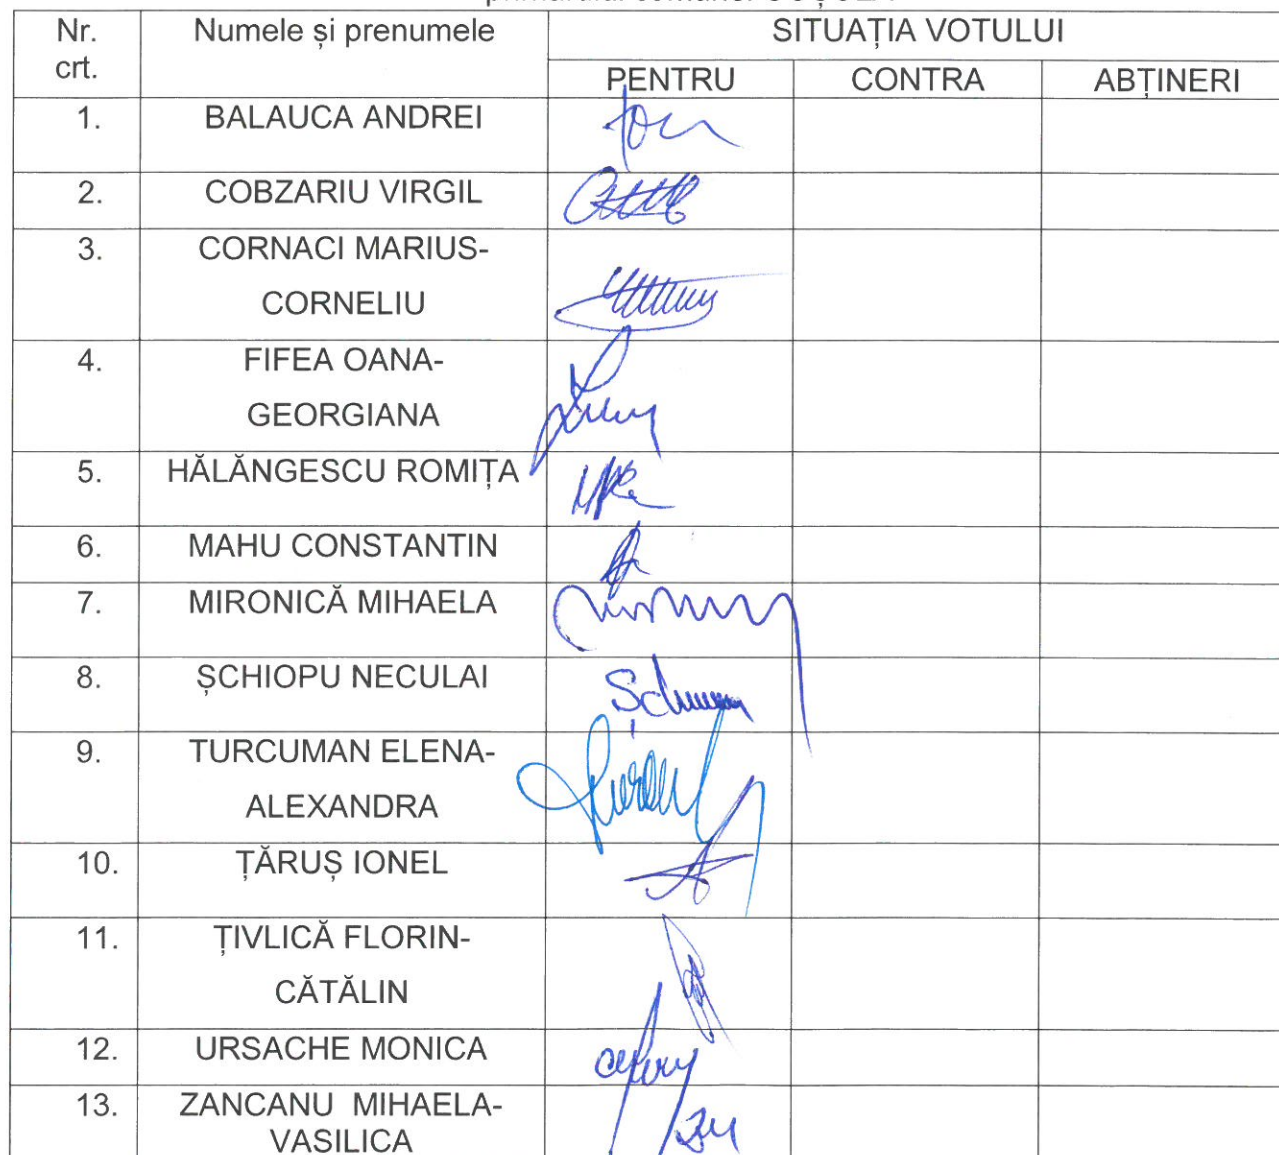 Nr.
crt.
Numele și prenumele
SITUAȚIA VOTULUI
PENTRU
CONTRA
ABȚINERI
1.
BALAUCA ANDREI
2.
COBZARIU VIRGIL
3.
CORNACI MARIUS-
CORNELIU
4.
FIFEA OANA-
GEORGIANA
5.
HĂLĂNGESCU ROMIȚA
6.
MAHU CONSTANTIN
7.
MIRONICĂ MIHAELA
8.
ȘCHIOPU NECULAI
9.
TURCUMAN ELENA-
ALEXANDRA
10.
ȚĂRUȘ IONEL
11.
ȚIVLICĂ FLORIN-
CĂTĂLIN
12.
URSACHE MONICA
13.
ZANCANU MIHAELA-
VASILICA